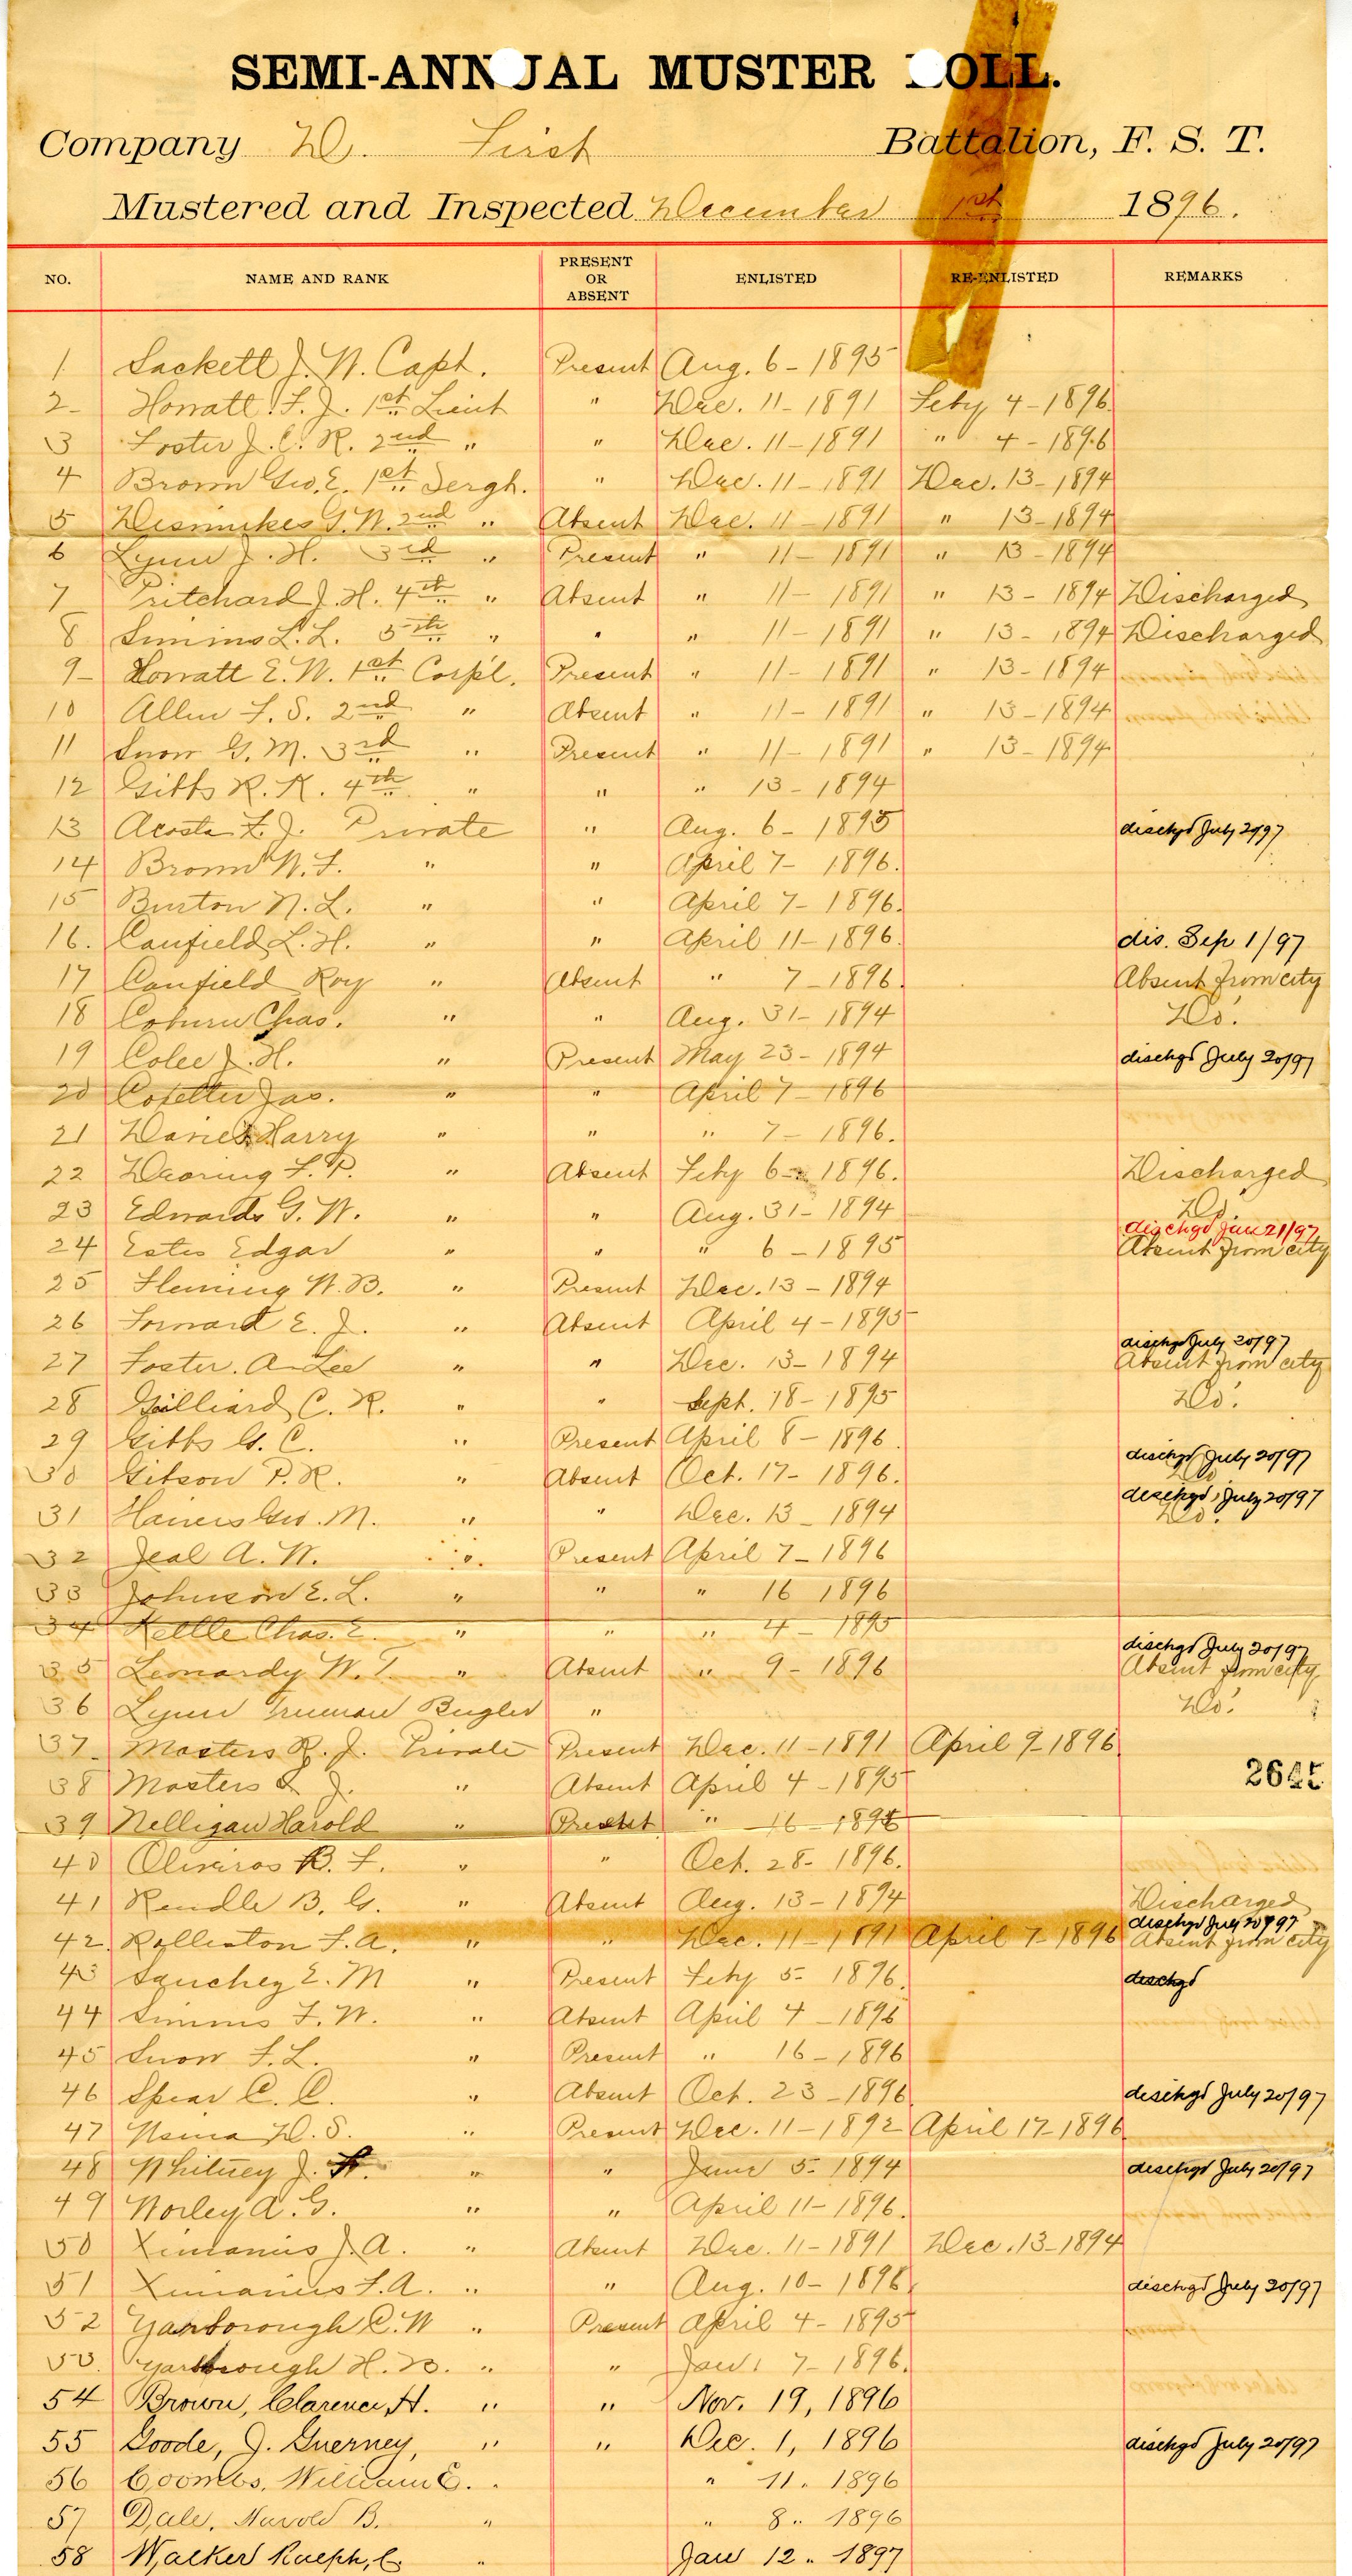 SEMI-ANNUAL MUSTER ROLL.
Company D. First Battalion, F. S. T.
Mustered and Inspected December 1st 1896.
NO. NAME AND RANK PRESENT OR ABSENT ENLISTED RE-ENLISTED REMARKS
1 Sackett J. W. Capt. Present Aug. 6 - 1895
2 Howatt F. J. 1st Lieut " Dec. 11 - 1891 Feby 4 - 1896
3 Foster J. C. R. 2nd " " Dec. 11 - 1891 " 4 - 1896
4 Brown Geo. E. 1st Sergt. " Dec. 11 - 1891 Dec. 13 - 1894
5 Dismukes G. W. 2nd " Absent Dec. 11 - 1891 " 13 - 1894
6 Lynn J. H. 3rd " Present " 11 - 1891 " 13 - 1894
7 Pritchard J. H. 4th " Absent " 11 - 1891 " 13 - 1894 Discharged
8 Simms L. L. 5th " " " 11 - 1891 " 13 - 1894 Discharged
9 Howatt E. W. 1st Corp'l. Present " 11 - 1891 " 13 - 1894
10 Allen F. S. 2nd " Absent " 11 - 1891 " 13 - 1894
11 Snow G. M. 3rd " Present " 11 - 1891 " 13 - 1894
12 Gibbs R. K. 4th " " " 13 - 1894
13 Acosta F. J. Private " Aug. 6 - 1895 dischgd July 2/97
14 Brown W. F. " " April 7 - 1896.
15 Burton N. L. " " April 7 - 1896.
16. Canfield L. H. " " April 11 - 1896. dis. Sep 1/97
17 Canfield Roy " Absent " 7 - 1896. Absent from city
18 Coburn Chas. " " Aug. 31 - 1894 Do.
19 Colee J. H. " Present May 23 - 1894 dischgd July 20/97
20 Colelter Jas. " " April 7 - 1896
21 Daniels Harry " " " 7 - 1896.
22 Dearing F. P. " Absent Feby 6 - 1896. Discharged
23 Edwards G. W. " " Aug. 31 - 1894 Do
dischgd Jan 21/97
24 Estes Edgar " " " 6 - 1895 Absent from city
25 Fleming W. B. " Present Dec. 13 - 1894
26 Forward E. J. " Absent April 4 - 1895
dischgd July 20/97
27 Foster. A. Lee " " Dec. 13 - 1894 Absent from city
28 Gilliard C. R. " " Sept. 18 - 1895 Do.
29 Gibbs G. C. " Present April 8 - 1896.
dischgd July 20/97
30 Gibson P. R. " Absent Oct. 17 - 1896. Do
dischgd July 20/97
31 Haines Geo. M. " " Dec. 13 - 1894 Do.
32 Jeal A. W. " Present April 7 - 1896
33 Johnson E. L. " " " 16 1896
34 Kettle Chas. E. " " " 4 - 1895
dischgd July 20/97
35 Leonardy W. T. " Absent " 9 - 1896 Absent from city
36 Lynn Truman Bugler " Do.
37 Masters R. J. Private Present Dec. 11 - 1891 April 9 - 1896
38 Masters J. " Absent April 4 - 1895
2645
39 Nelligan Harold " Present " 16 - 1896
40 Oliveros B. F. " " Oct. 28 - 1896.
41 Rendle B. G. " Absent Aug. 13 - 1894 Discharged
dischgd July 20/97
42. Rolleston F. A. " " Dec. 11 - 1891 April 7 - 1896 Absent from city
43 Sanchez E. M " Present Feby 5 - 1896. dischgd
44 Simms F. W. " Absent April 4 - 1896
45 Snow F. L. " Present " 16 - 1896
46 Spear C. C. " Absent Oct. 23 - 1896 dischgd July 20/97
47 D. S. " Present Dec. 11 - 1892 April 17 - 1896
48 Whitney J. " " June 5 - 1894 dischgd July 20/97
49 Worley A. G. " " April 11 - 1896.
50 Ximanies J. A. " Absent Dec. 11 - 1891 Dec. 13 - 1894
51 Ximanies F. A. " " Aug. 10 - 1896 dischgd July 20/97
52 Yarborough C. W " Present April 4 - 1895
53. Yarborough H. B. " " Jan. 7 - 1896.
54 Brown, Clarence H. " " Nov. 19, 1896
55 Goode, J. Guerney, " " Dec. 1, 1896 dischgd July 20/97
56 Coombs, William E. " " 11. 1896
57 Dale, Harold B. " " 8 " 1896
58 Walker Ralph, C. " Jan 12 " 1897